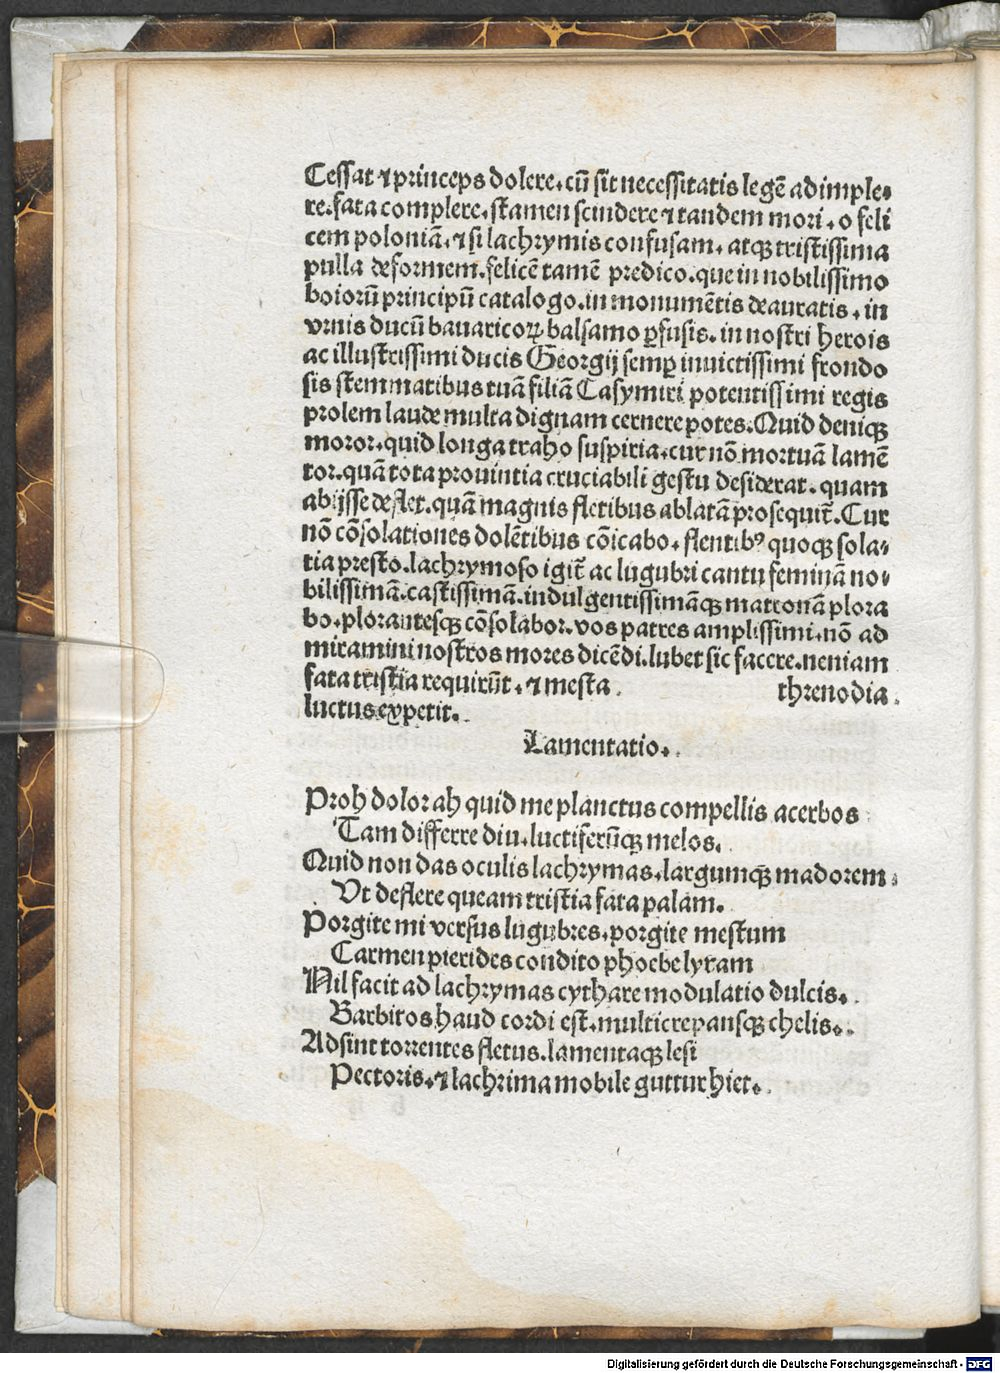 Cessat ⁊ princeps dolere. cū sit necessitatis legē adimple-
re. fata complere. stamen scindere ⁊ tandem mori. o feli
cem poloniā. ⁊ si lachrymis confusam. atqꝫ tristissima
pulla deformem. felicē tamē predico. que in nobilissimo
boiorū principū catalogo. in monumētis deauratis. in
vrnis ducū bauaricoꝝ balsamo ꝑfusis. in nostri herois
ac illustrissimi ducis Georgij semꝑ inuictissimi frondo
sis stemmatibus tuā filiā Casymiri potentissimi regis
prolem laude multa dignam cernere potes. Quid deniqꝫ
moror. quid longa traho suspiria. cur nō mortuā lamē
tor. quā tota prouintia cruciabili gestu desiderat. quam
abijsse deflet. quā magnis fletibus ablatā prosequit̄. Cur
nō cōsolationes dolētibus cōicabo. flentibꝰ quoqꝫ sola-
tia presto. lachrymoso igit̄ ac lugubri cantu feminā no-
bilissimā. castissimā. indulgentissimāqꝫ matronā plora
bo. plorantesqꝫ cōsolabor. vos patres amplissimi. nō ad
miramini nostros mores dicēdi. lubet sic facere. neniam
fata tristia requirūt. ⁊ mesta threnodia
luctus expetit.
Lamentatio.
Proh dolor ah quid me planctus compellis acerbos
Tam differre diu. luctiferūqꝫ melos.
Quid non das oculis lachrymas. largumqꝫ madorem.
Vt deflere queam tristia fata palam.
Porgite mi versus lugubres. porgite mestum
Carmen pierides condito phoebe lyram
Nil facit ad lachrymas cythare modulatio dulcis.
Barbitos haud cordi est. multicrepansqꝫ chelis.
Adsint torrentes fletus. lamentaqꝫ lesi
Pectoris. ⁊ lachrima mobile guttur hiet.
Digitalisierung gefördert durch die Deutsche Forschungsgemeinschaft - DFG